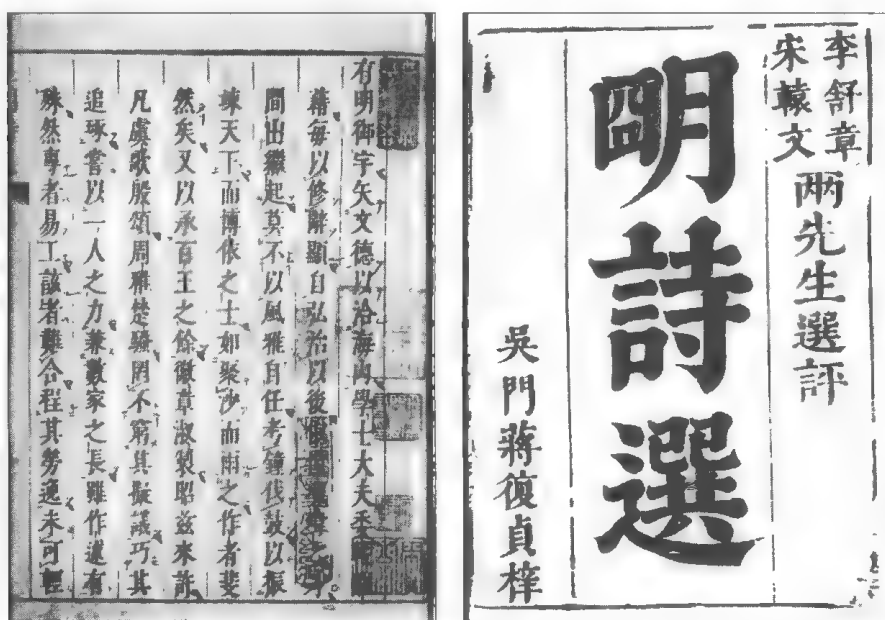 李舒章
宋轅文
兩先生選評
明詩選
吳門蔣復貞梓
有明御宇矢文德以洽海內學士大夫
藉每以修辭顯自弘治以後
間出繼起莫不以風雅自任考鐘伐鼓以振
竦天下而博依之士如聚沙而雨之作者斐
然矣又以承百王之餘徽章淑製昭茲來許
凡虞歌殷頌周雅楚騷罔不窮其擬議巧其
追琢嘗以一人之力兼數家之長雖作述有
殊然專者易工該者難合程其勞逸未可輕